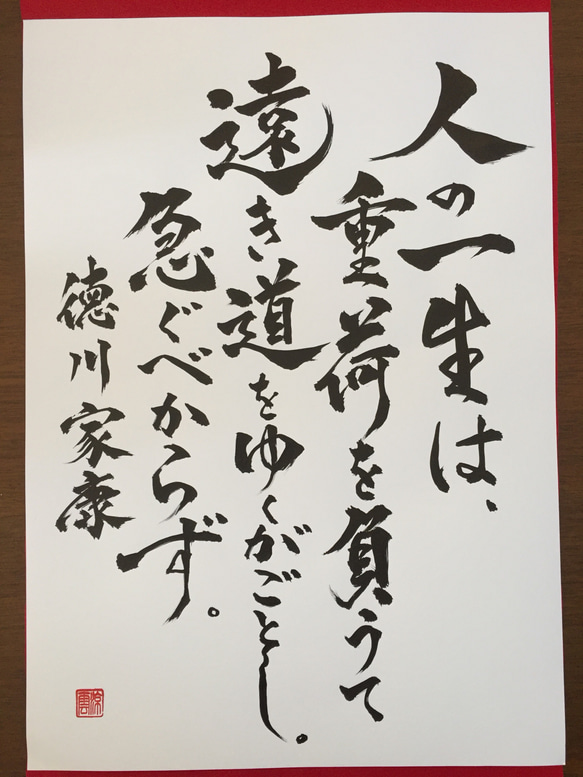 人の一生は、
重荷を負うて
遠き道をゆくがごとし。
急ぐべからず。
徳川家康